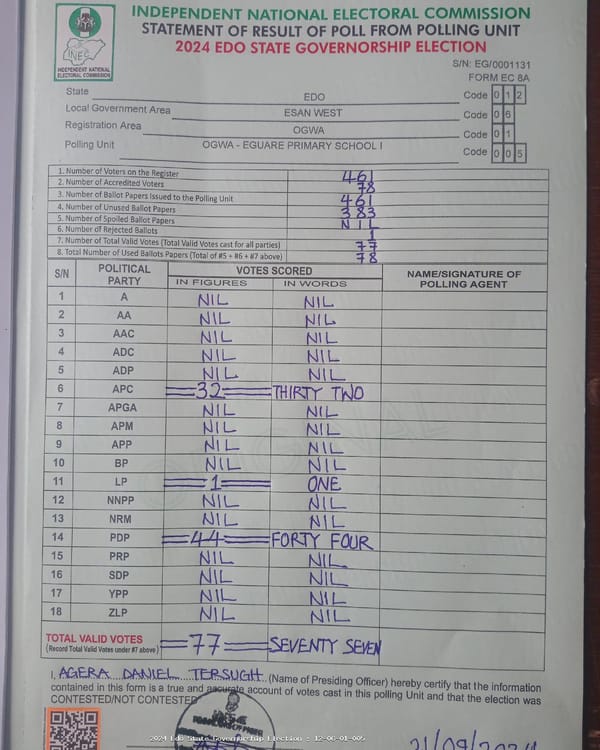 INDEPENDENT NATIONAL ELECTORAL COMMISSION
STATEMENT OF RESULT OF POLL FROM POLLING UNIT
2024 EDO STATE GOVERNORSHIP ELECTION
INEC
INDEPENDENT NATIONAL ELECTORAL COMMISSION
S/N: EG/0001131
FORM EC 8A
State EDO Code 0 1 2
Local Government Area ESAN WEST Code 0 6
Registration Area OGWA Code 0 1
Polling Unit OGWA - EGUARE PRIMARY SCHOOL I Code 0 0 5
1. Number of Voters on the Register 461
2. Number of Accredited Voters 78
3. Number of Ballot Papers Issued to the Polling Unit 461
4. Number of Unused Ballot Papers 383
5. Number of Spoiled Ballot Papers NIL
6. Number of Rejected Ballots 1
7. Number of Total Valid Votes (Total Valid Votes cast for all parties) 77
8. Total Number of Used Ballots Papers (Total of #5 + #6 + #7 above) 78
S/N POLITICAL PARTY VOTES SCORED NAME/SIGNATURE OF POLLING AGENT
IN FIGURES IN WORDS
1 A NIL NIL
2 AA NIL NIL
3 AAC NIL NIL
4 ADC NIL NIL
5 ADP NIL NIL
6 APC 32 THIRTY TWO
7 APGA NIL NIL
8 APM NIL NIL
9 APP NIL NIL
10 BP NIL NIL
11 LP 1 ONE
12 NNPP NIL NIL
13 NRM NIL NIL
14 PDP 44 FORTY FOUR
15 PRP NIL NIL
16 SDP NIL NIL
17 YPP NIL NIL
18 ZLP NIL NIL
TOTAL VALID VOTES 77 SEVENTY SEVEN
(Record Total Valid Votes under #7 above)
I, AGERA DANIEL TERSUGH (Name of Presiding Officer) hereby certify that the information
contained in this form is a true and accurate account of votes cast in this polling Unit and that the election was
CONTESTED/NOT CONTESTED
2024 Edo State Governorship Election : 12-06-01-005